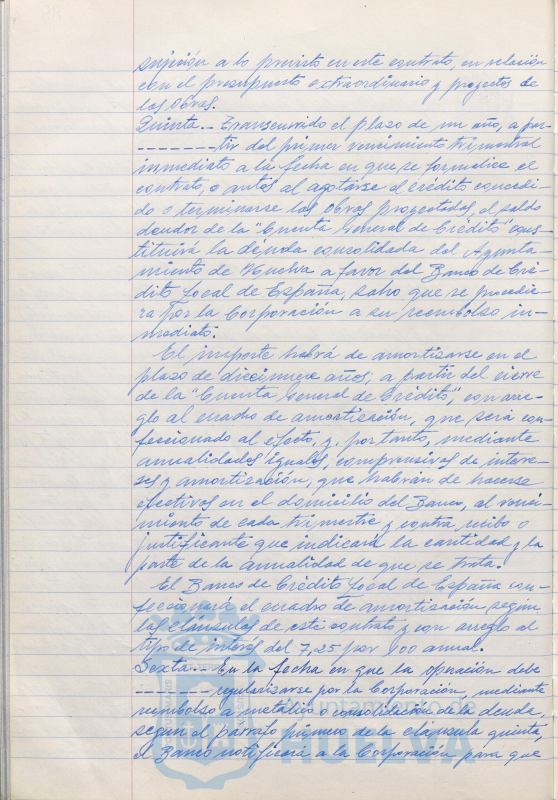 sujeción a lo previsto en este contrato, en relación
con el presupuesto extraordinario y proyectos de
las obras.
Quinta.- Transcurrido el plazo de un año, a par-
-------- tir del primer vencimiento trimestral
inmediato a la fecha en que se formalice el
contrato, o antes al agotarse el crédito concedi-
do o terminarse las obras proyectadas, el saldo
deudor de la "Cuenta General de Crédito" cons-
tituirá la deuda consolidada del Ayunta-
miento de Huelva a favor del Banco de Cré-
dito Local de España, salvo que se procedie-
ra por la Corporación a su reembolso in-
mediato.
El importe habrá de amortizarse en el
plazo de diecinueve años, a partir del cierre
de la "Cuenta General de Crédito", con arre-
glo al cuadro de amortización, que será con-
feccionado al efecto, y, por tanto, mediante
anualidades iguales, comprensivas de intere-
ses y amortización, que habrán de hacerse
efectivas en el domicilio del Banco, al venci-
miento de cada trimestre y contra recibo o
justificante que indicará la cantidad y la
parte de la anualidad de que se trata.
El Banco de Crédito Local de España con-
feccionará el cuadro de amortización según
las cláusulas de este contrato y con arreglo al
tipo de interés del 7,25 por 100 anual.
Sexta.- En la fecha en que la operación debe
------- regularizarse por la Corporación, mediante
reembolso a metálico o consolidación de la deuda,
según el párrafo primero de la cláusula quinta,
el Banco notificará a la Corporación para que
Ayuntamiento de
HUELVA